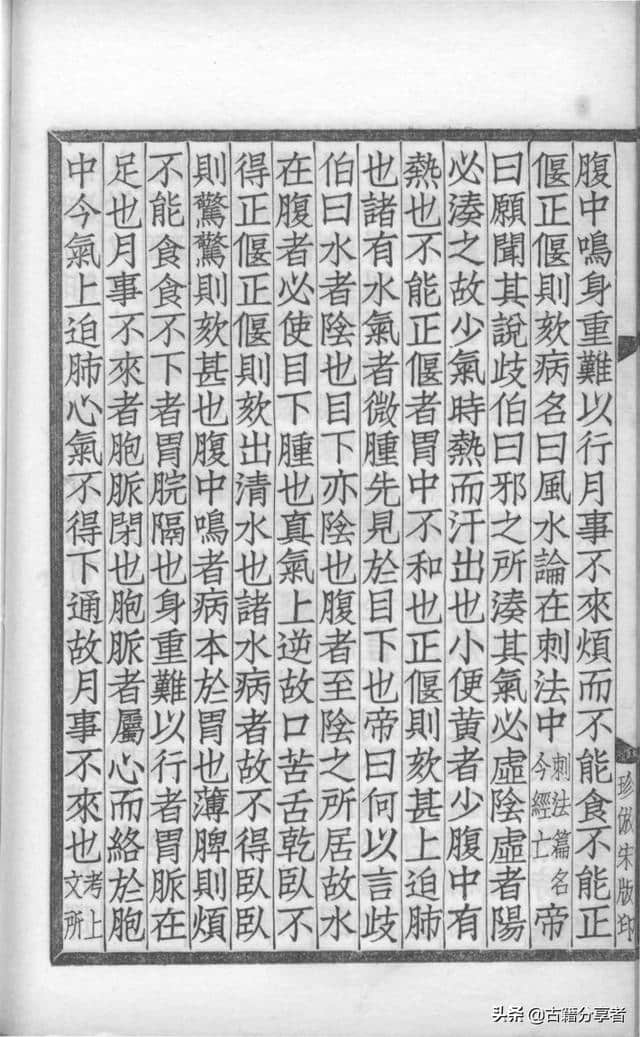 腹中鳴身重難以行月事不來煩而不能食不能正
偃正偃則欬病名曰風水論在刺法中刺法篇名今經亡帝
曰願聞其說歧伯曰邪之所湊其氣必虛陰虛者陽
必湊之故少氣時熱而汗出也小便黃者少腹中有
熱也不能正偃者胃中不和也正偃則欬甚上迫肺
也諸有水氣者微腫先見於目下也帝曰何以言歧
伯曰水者陰也目下亦陰也腹者至陰之所居故水
在腹者必使目下腫也真氣上逆故口苦舌乾臥不
得正偃正偃則欬出清水也諸水病者故不得臥臥
則驚驚則欬甚也腹中鳴者病本於胃也薄脾則煩
不能食食不下者胃脘隔也身重難以行者胃脈在
足也月事不來者胞脈閉也胞脈者屬心而絡於胞
中今氣上迫肺心氣不得下通故月事不來也考上文所
珍倣宋版印
头条 @古籍分享者